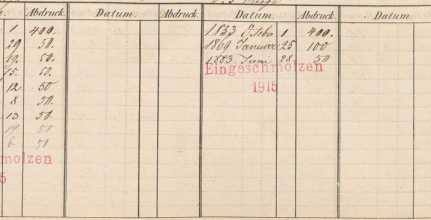 Abdruck. Datum. Abdruck. Datum. Abdruck. Datum.
1 400.
29 50.
19. 50.
15. 50.
12 50
8 50.
13 50.
19 50
6 50
molzen
5
1853 1 400.
1869 Januar 25 100
1883 Juni 28 50
Eingeschmolzen
1915